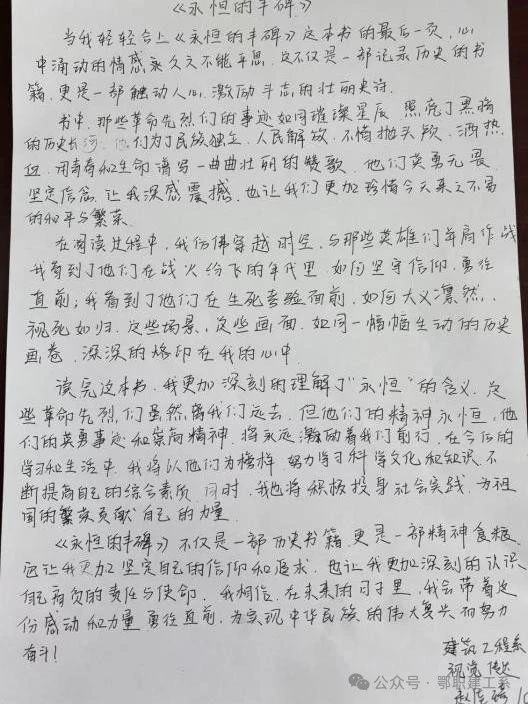 《永恒的丰碑》
当我轻轻合上《永恒的丰碑》这本书的最后一页，心
中涌动的情感永久久不能平息。这不仅是一部记录历史的书
籍，更是一部触动人心，激励斗志的壮丽史诗.
书中，那些革命先烈们的事迹如同璀璨星辰，照亮了黑暗
的历史长河。他们为了民族独立、人民解放，不惜抛头颅、洒热
血，用青春和生命谱写一曲曲壮丽的赞歌。他们英勇无畏、
坚定信念，让我深感震撼，也让我们更加珍惜今天来之不易
的和平与繁荣。
在阅读过程中，我仿佛穿越时空，与那些英雄们并肩作战
我看到了他们在战火纷飞的年代里，如何坚守信仰，勇往
直前；我看到了他们在生死考验面前，如何大义凛然，
视死如归.这些场景，这些画面，如同一幅幅生动的历史
画卷，深深的烙印在我的心中.
读完这本书，我更加深刻的理解了"永恒"的含义.这
些革命先烈们虽然离我们远去，但他们的精神永恒，他
们的英勇事迹和崇高精神，将永远激励着我们前行.在今后的
学习和生活中，我将以他们为榜样，努力学习科学文化和知识，不
断提高自己的综合素质，同时，我也将积极投身社会实践，为祖
国的繁荣贡献自己的力量.
《永恒的丰碑》不仅是一部历史书籍，更是一部精神食粮，
它让我更加坚定自己的信仰和追求，也让我更加深刻的认识
自己肩负的责任与使命，我相信，在未来的日子里，我会带着这
份感动和力量，勇往直前，为实现中华民族的伟大复兴而努力
奋斗！
建筑工程系
视觉传达
公众号·鄂职建工系